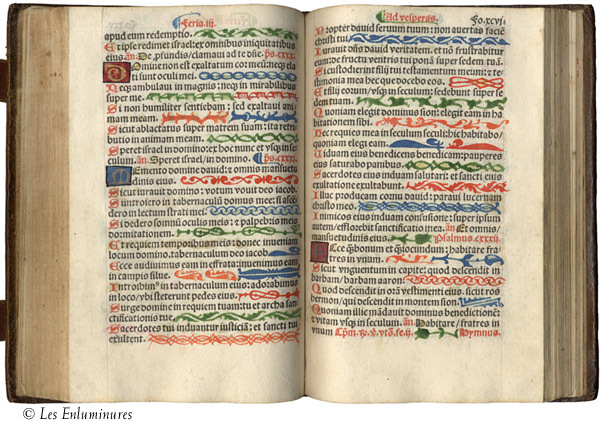 Feria.iii.
apud eum redemptio.
Et ipse redimet israel: ex omnibus iniquitatibus
eius. añ. De profundis/clamaui ad te dñe. ps. cxxx.
Domine non est exaltatum cor meũ: neq; ela
ti sunt oculi mei.
Neq; ambulaui in magnis: neq; in mirabilibus
super me.
Si non humiliter sentiebam: sed exaltaui ani
mam meam.
Sicut ablactatus super matrem suam: ita retri
butio in animam meam.
Speret israel in domino: ex hoc nunc et vsq; in se
culum. añ. Speret israel/in domino. ps. cxxxi.
Memento domine dauid: omnis mansuetu
dinis eius.
Sicut iurauit domino: votum vouit deo iacob.
Si introiero in tabernaculũ domus mee: si ascen
dero in lectum strati mei.
Si dedero somnũ oculis meis: et palpebris meis
dormitationem.
Et requiem temporibus meis: donec inueniam
locum domino. tabernaculum deo iacob.
Ecce audiuimus eam in effrata: inuenimus eam
in campis silue.
Introibim⁹ in tabernaculum eius: adorabimus
in loco/vbi steterunt pedes eius.
Surge domine in requiem tuam: tu et archa san
ctificationis tue.
Sacerdotes tui induantur iusticiã: et sancti tui
exultent.
Ad vesperas. Fo. xcvj.
Propter dauid seruum tuum: non auertas faciẽ
christi tui.
Iurauit dñs dauid veritatem. et nõ frustrabitur
eum: de fructu ventris tui ponam super sedem tuã.
Si custodierint filij tui testamentum meum: et tes
timonia mea hec que docebo eos.
Et filij eorum/vsq; in seculum: sedebunt super se
dem tuam.
Quoniam elegit dominus sion: elegit eam in ha
bitationem sibi.
Hec requies mea in seculum seculi: hic habitabo/
quoniam elegi eam.
Viduam eius benedicens benedicam: pauperes
eius saturabo panibus.
Sacerdotes eius induam salutari: et sancti eius
exultatione exultabunt.
Illuc producam cornu dauid: paraui lucernam
christo meo.
Inimicos eius induam confusione: super ipsum
autem/efflorebit sanctificatio mea. añ. Et omnis/
mansuetudinis eius. Psalmus. cxxxii.
Ecce q̃ bonum et q̃ iocundum: habitare fra
tres in vnum.
Sicut vnguentum in capite: quod descendit in
barbam/barbam aaron.
Quod descendit in orã vestimenti eius. sicut ros
hermon/qui descendit in montem sion.
Quoniam illic mãdauit dominus benedictionẽ:
et vitam vsq; in seculum. añ. Habitare/fratres in
vnum Hymnus.
© Les Enluminures